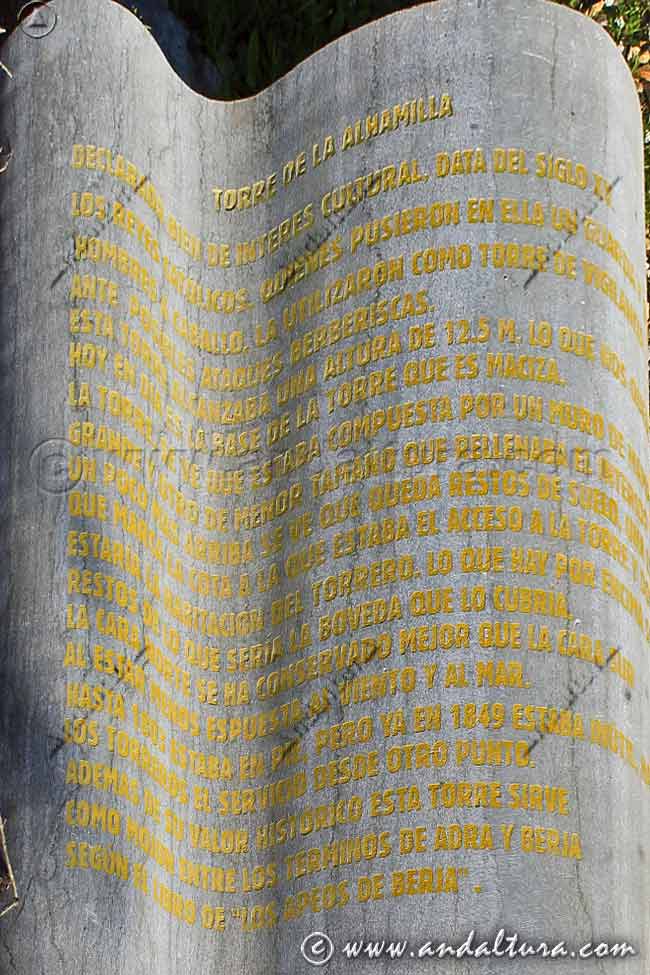 TORRE DE LA ALHAMILLA
DECLARADA BIEN DE INTERES CULTURAL, DATA DEL SIGLO XV
LOS REYES CATOLICOS, QUIENES PUSIERON EN ELLA UN GUARDA
HOMBRES A CABALLO, LA UTILIZARON COMO TORRE DE VIGILANCIA
ANTE POSIBLES ATAQUES BERBERISCAS.
ESTA TORRE ALCANZABA UNA ALTURA DE 12.5 M. LO QUE NOS
HOY EN DIA ES LA BASE DE LA TORRE QUE ES MACIZA.
LA TORRE SE VE QUE ESTABA COMPUESTA POR UN MURO DE
GRANDE Y OTRO DE MENOR TAMAÑO QUE RELLENABA EL INTERIOR
UN POCO MAS ARRIBA SE VE QUE QUEDA RESTOS DE SUELO,
QUE MARCA LA COTA A LA QUE ESTABA EL ACCESO A LA TORRE Y
ESTARIA LA HABITACION DEL TORRERO. LO QUE HAY POR ENCIMA
RESTOS DE LO QUE SERIA LA BOVEDA QUE LO CUBRIA.
LA CARA NORTE SE HA CONSERVADO MEJOR QUE LA CARA SUR
AL ESTAR MENOS ESPUESTA AL VIENTO Y AL MAR.
HASTA ESTABA EN PIE, PERO YA EN 1849 ESTABA INUTIL,
LOS TORREROS EL SERVICIO DESDE OTRO PUNTO.
ADEMAS DE SU VALOR HISTORICO ESTA TORRE SIRVE
COMO MOJON ENTRE LOS TERMINOS DE ADRA Y BERJA
SEGUN EL LIBRO DE "LOS APEOS DE BERJA".
© www.andaltura.com